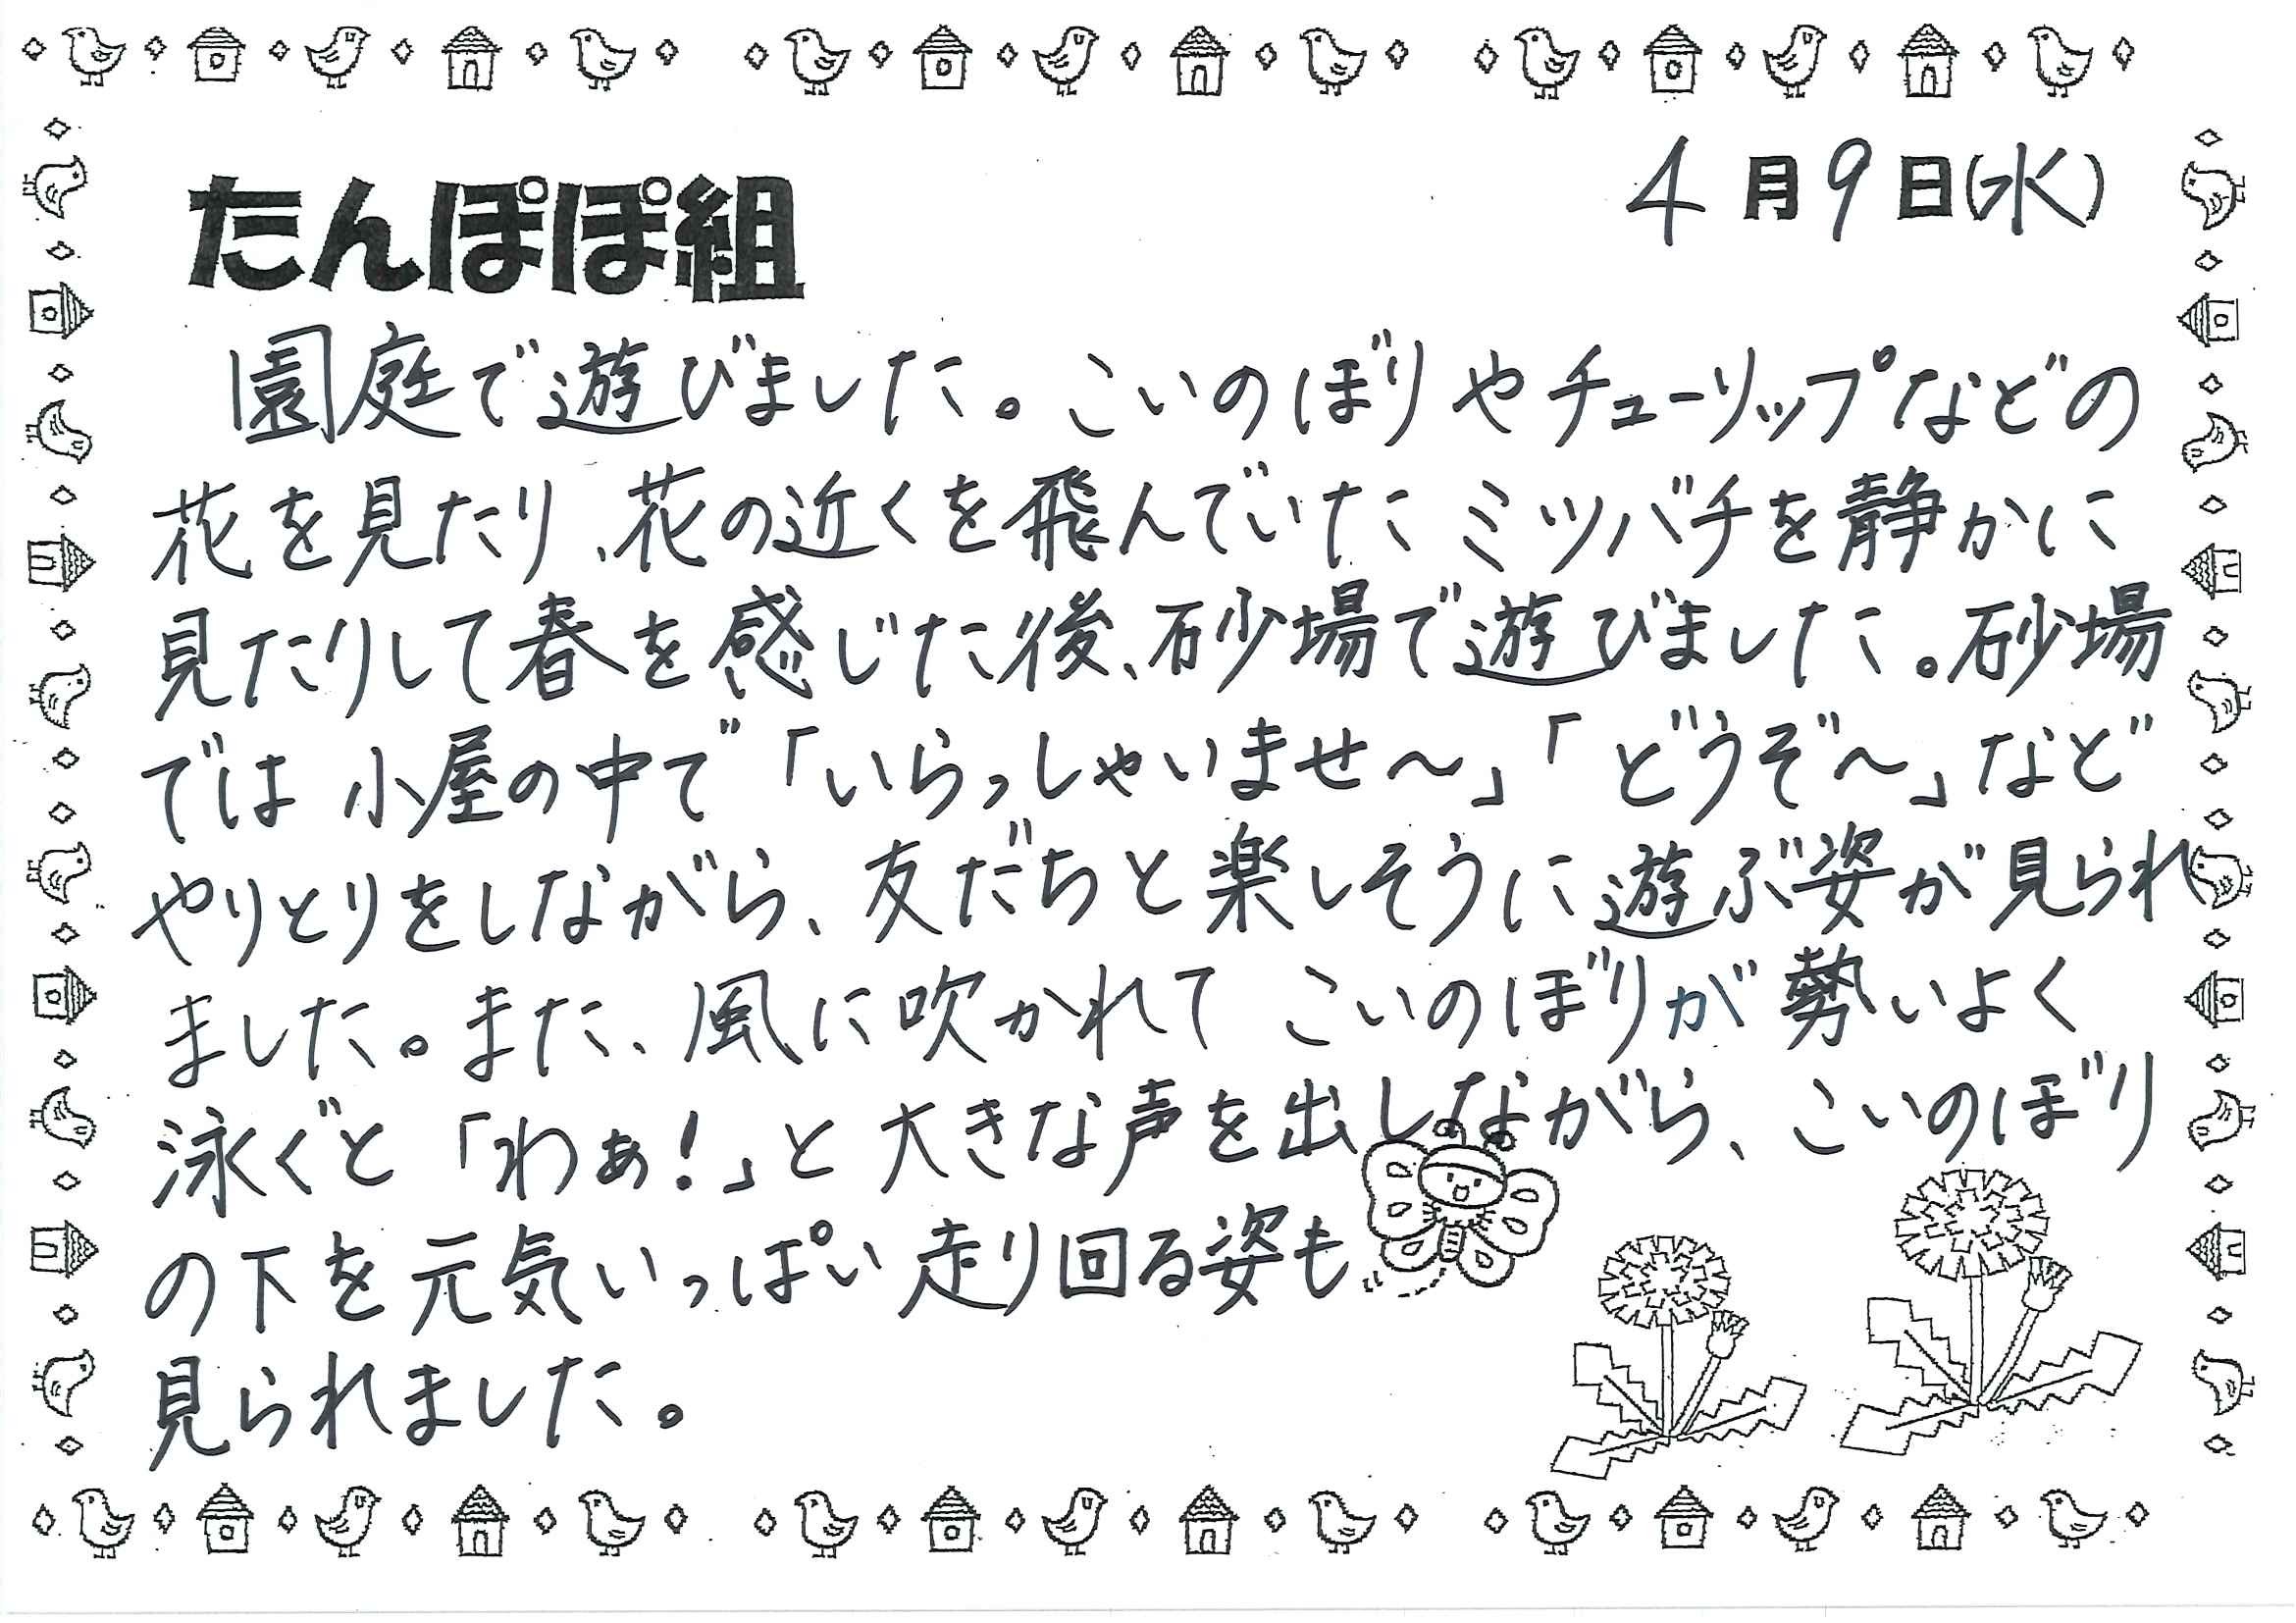 4月9日(水)
たんぽぽ組
園庭で遊びました。こいのぼりやチューリップなどの
花を見たり、花の近くを飛んでいたミツバチを静かに
見たりして春を感じた後、砂場で遊びました。砂場
では小屋の中で「いらっしゃいませ～」「どうぞ～」など
やりとりをしながら、友だちと楽しそうに遊ぶ姿が見られ
ました。また、風に吹かれてこいのぼりが勢いよく
泳ぐと「わぁ!」と大きな声を出しながら、こいのぼり
の下を元気いっぱい走り回る姿も
見られました。